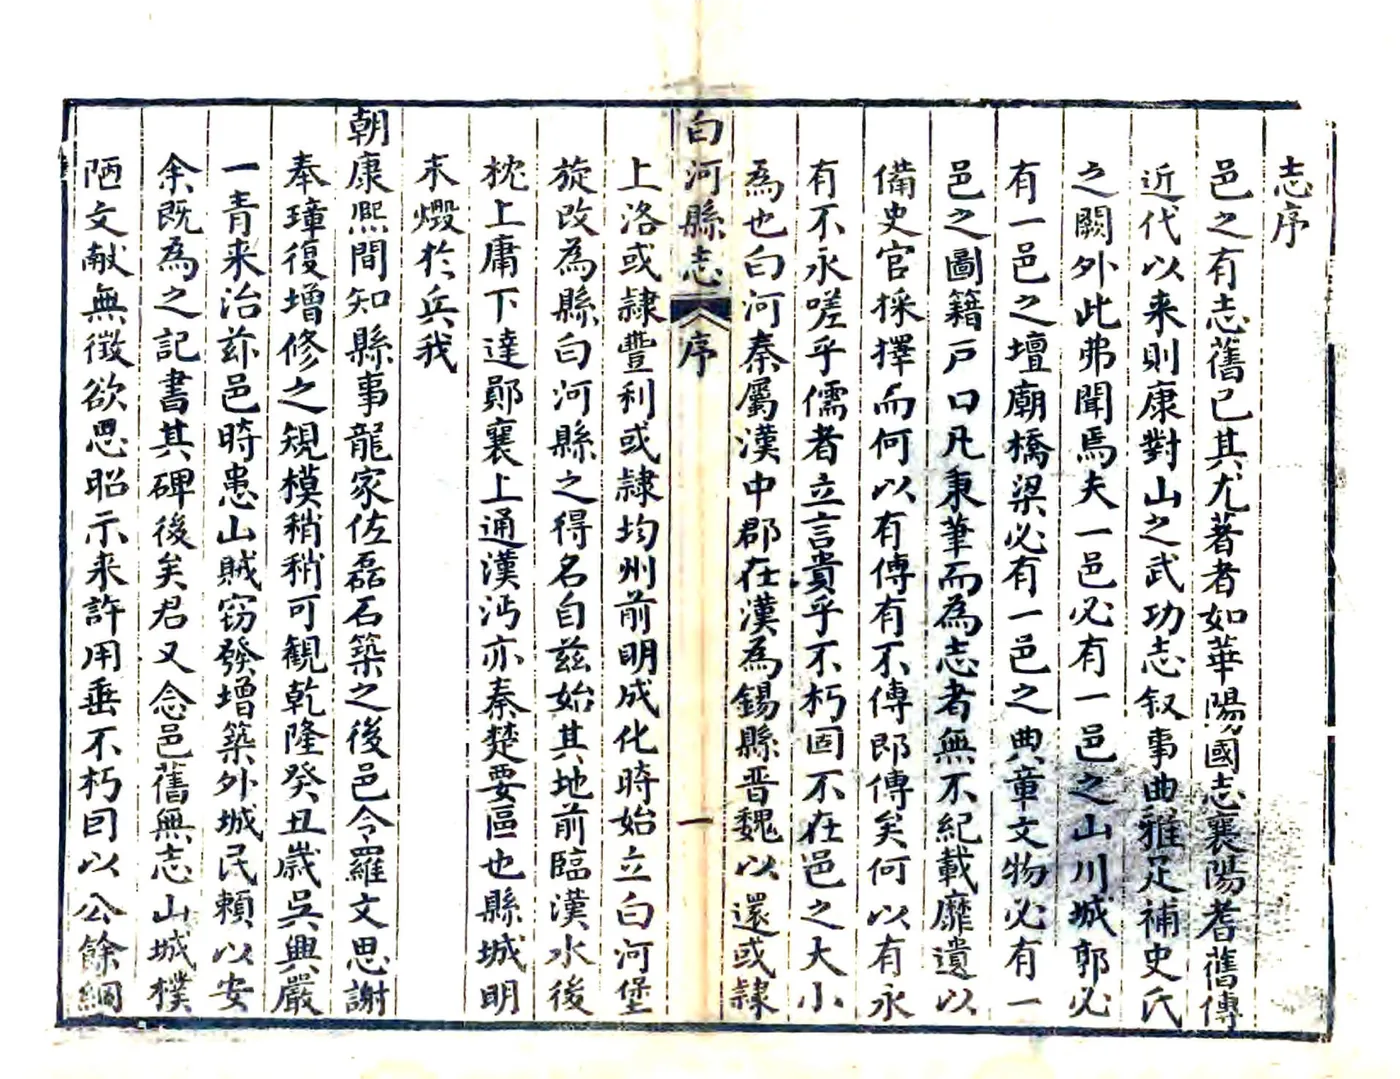 志序
邑之有志舊已其尤著者如華陽國志襄陽耆舊傳
近代以来則康對山之武功志叙事曲雅足補史氏
之闕外此弗聞焉夫一邑必有一邑之山川城郭必
有一邑之壇廟橋梁必有一邑之典章文物必有一
邑之圖籍戸口凡秉筆而為志者無不紀載靡遺以
備史官採擇而何以有傳有不傳即傳矣何以有永
有不永嗟乎儒者立言貴乎不朽固不在邑之大小
為也白河秦屬漢中郡在漢為錫縣晋魏以還或隸
白河縣志 序 一
上洛或隸豐利或隸均州前明成化時始立白河堡
旋改為縣白河縣之得名自兹始其地前臨漢水後
枕上庸下達鄖襄上通漢沔亦秦楚要區也縣城明
末燬於兵我
朝康熙間知縣事龍家佐磊石築之後邑令羅文思謝
奉璋復增修之規模稍稍可観乾隆癸丑歲吳興嚴
一青来治茲邑時患山賊窃發增築外城民賴以安
余既為之記書其碑後矣君又念邑舊無志山城樸
陋文献無徵欲思昭示来許用垂不朽囙以公餘綢